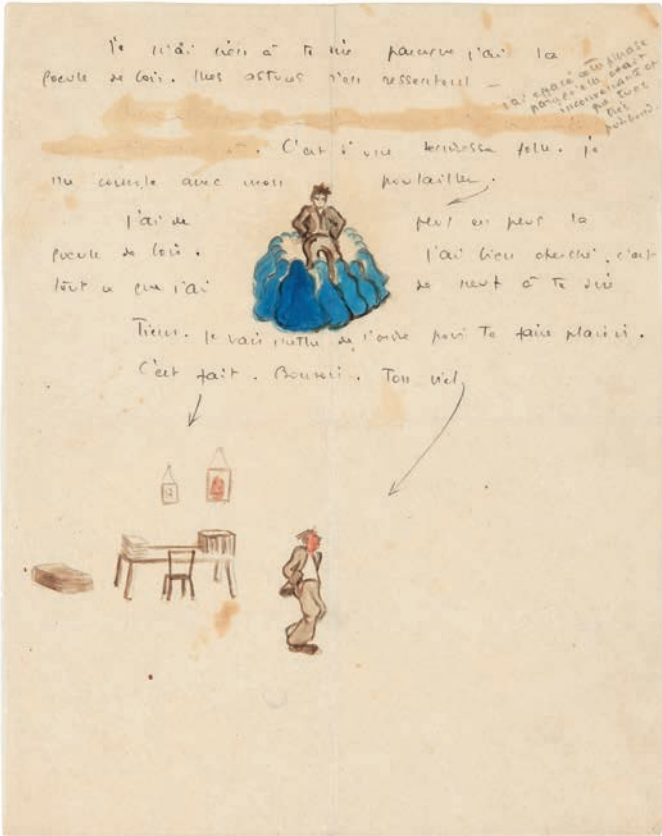 Je n'ai rien à te dire parceque j'ai la
gueule de bois. Mes astuces s'en ressentent –
j'ai effacé cette phrase
parce qu'elle était
inconvenante et
que tu es
très
pudibond
. C'est d'une folle. Je
me console avec mon poulailler.
J'ai de plus en plus la
gueule de bois. J'ai bien cherché. c'est
tout ce que j'ai de neuf à te dire
Tiens. Je vais mettre de l'ordre pour te faire plaisir.
C'est fait. Bonsoir. Ton viel